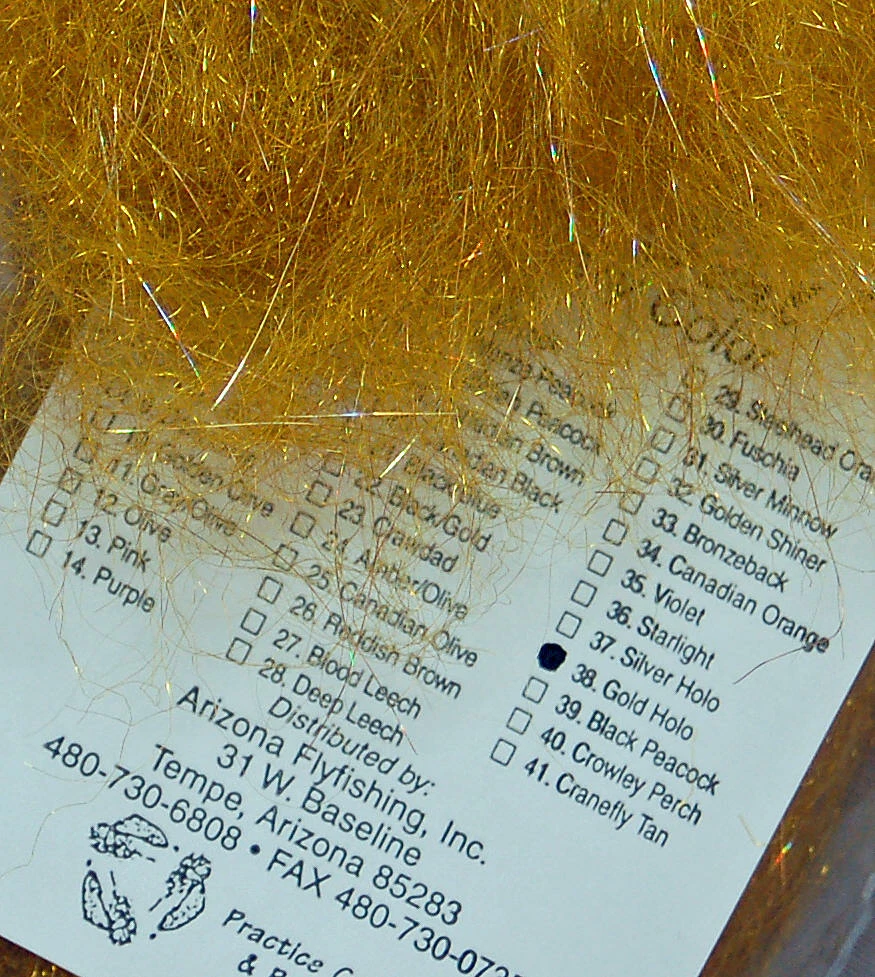 Color
Golden Olive
11. Gray/Olive
12. Olive
13. Pink
14. Purple
Peacock
Brown
Black
Blue
22. Black/Gold
23. Crawdad
24. Amber/Olive
25. Canadian Olive
26. Reddish Brown
27. Blood Leech
28. Deep Leech
29. Steelhead Ora
30. Fuschia
31. Silver Minnow
32. Golden Shiner
33. Bronzeback
34. Canadian Orange
35. Violet
36. Starlight
37. Silver Holo
38. Gold Holo
39. Black Peacock
40. Crowley Perch
41. Cranefly Tan
Distributed by:
Arizona Flyfishing, Inc.
31 W. Baseline
Tempe, Arizona 85283
480-730-6808 • FAX 480-730-072
Practice C
&